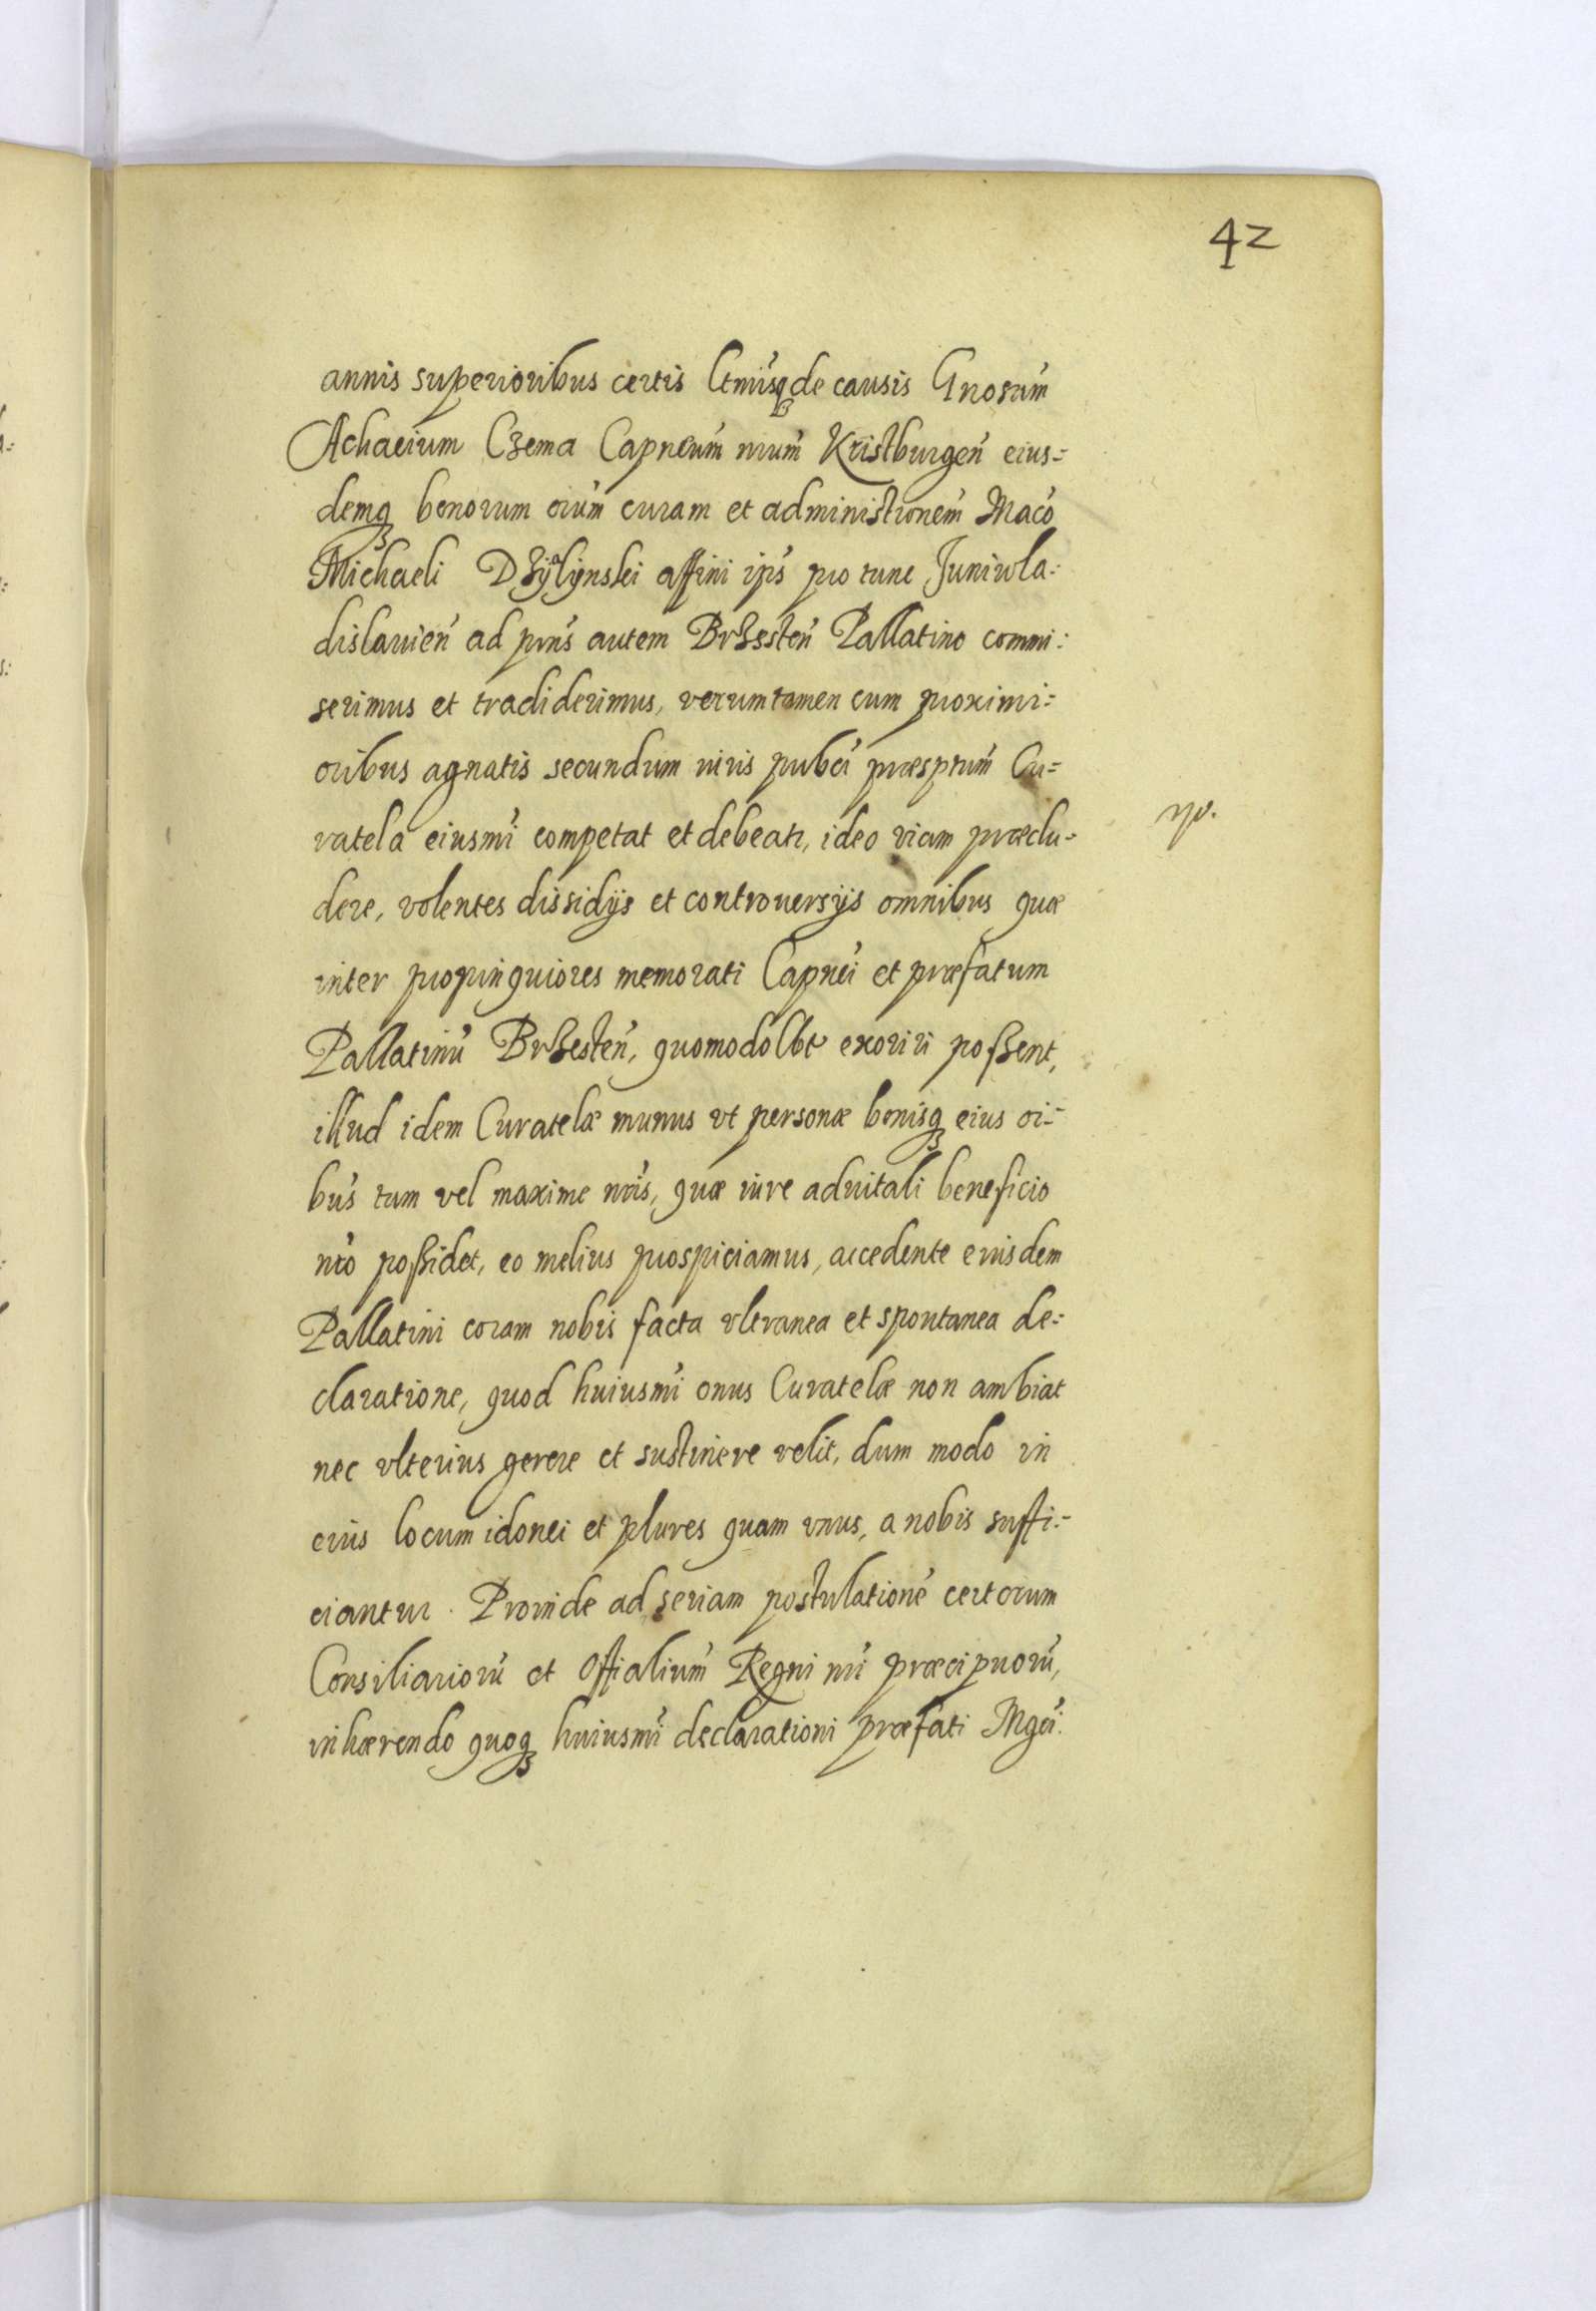 42
annis superioribus certis ltmisq de causis Gnosum
Achacium Czema Capneum nrum Kristburgen eius=
demq bonorum oium curam et administionem Maco
Michaeli Dzyalynski affini ips pro tunc Juniwla=
dislauien ad pns autem Brzesten Pallatino commi=
serimus et tradiderimus, verumtamen cum proximi=
oribus agnatis secundum iuris pubci præsptum Cu=
ratela eiusmi competat et debeatr, ideo viam præclu=
dere, volentes dissidijs et controuersijs omnibus quæ
inter propinquiores memorati Capnei et præfatum
Pallatinu Brzesten, quomodolbt exoriri possent,
illud idem Curatelæ munus vt personæ bonisq eius oi=
bus tum vel maxime nris, quæ iure aduitali beneficio
nro possidet, eo melius prospiciamus, accedente eiusdem
Pallatini coram nobis facta vltranea et spontanea de=
claratione, quod huiusmi onus Curatelæ non ambiat
nec vlterius gerere et sustinere velit, dum modo in
eius locum idonei et plures quam vnus, a nobis suffi=
ciantur. Proinde ad seriam postulatione certorum
Consiliarioru et Offialium Regni nri præcipuoru,
inhærendo quoq huiusmi declarationi præfati Mgci